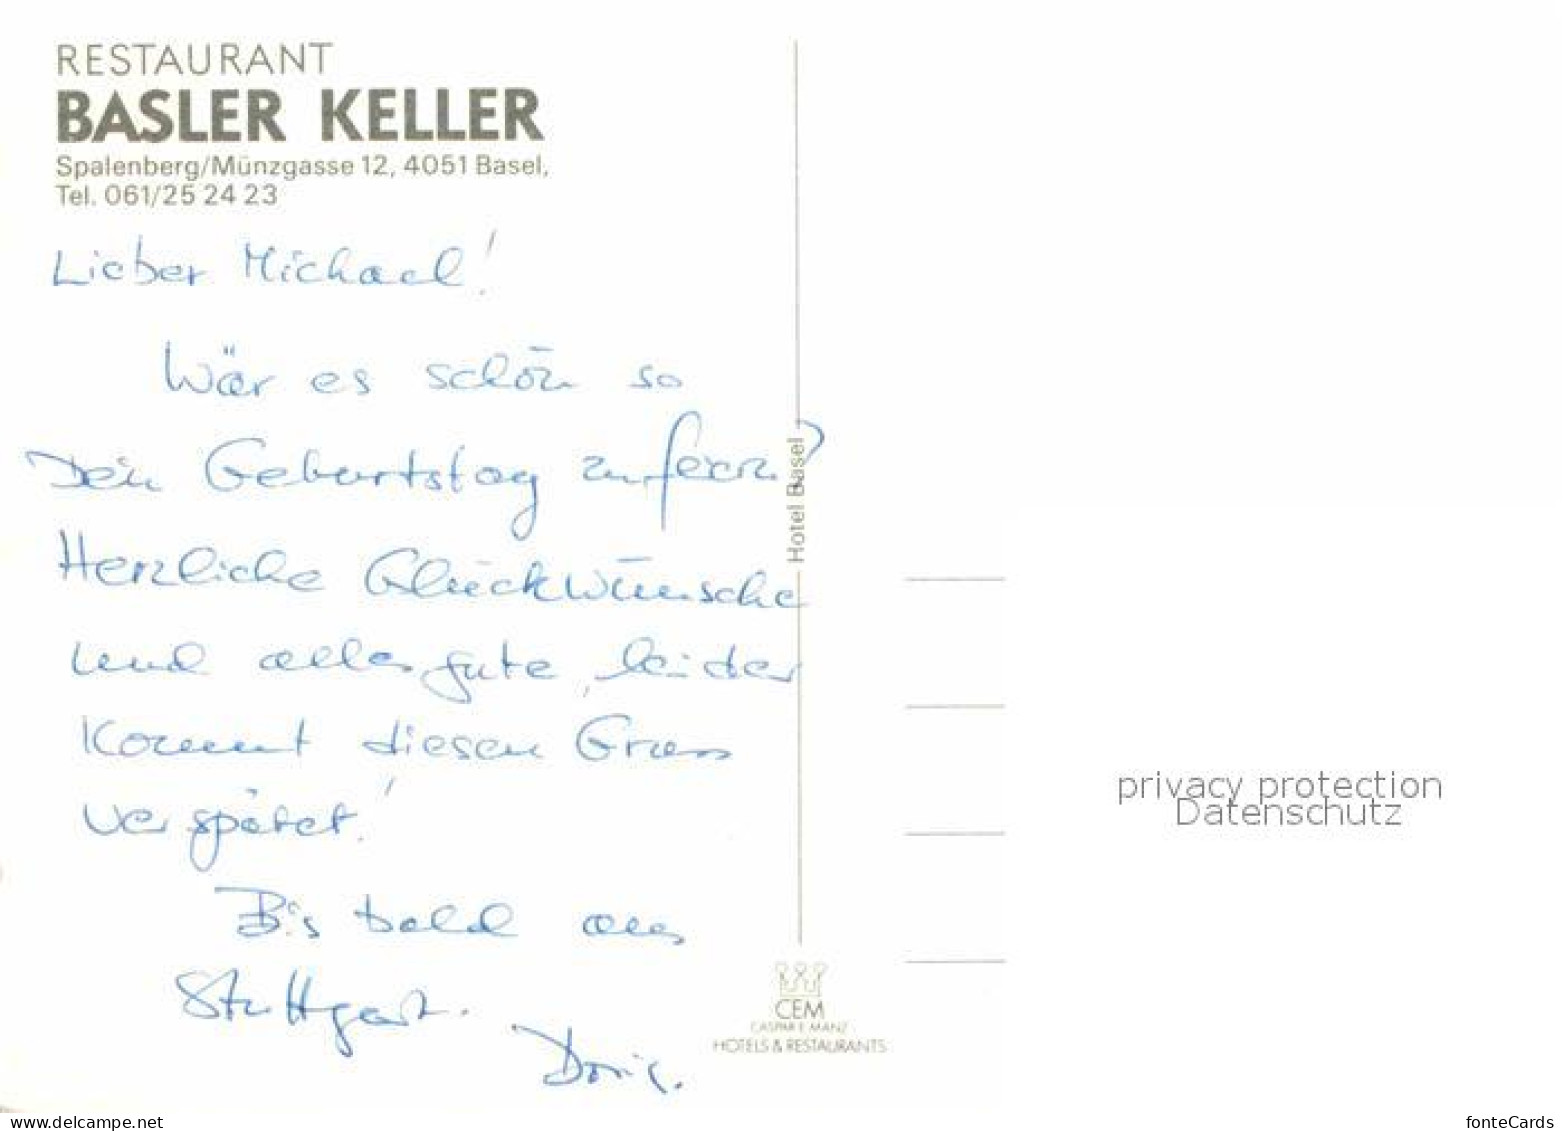 RESTAURANT
BASLER KELLER
Spalenberg/Münzgasse 12, 4051 Basel,
Tel. 061/25 24 23
Lieber Michael!
Wär es schön so
Dein Geburtstag zu feiern?
Herzliche Glückwünsche
und alles gute, leider
kommt diesen Gruss
verspätet!
Bis bald aus
Stuttgart.
Doris.
Hotel Basel
CEM
CASPAR E. MANZ
HOTELS & RESTAURANTS
privacy protection
Datenschutz
www.delcampe.net
fonteCards